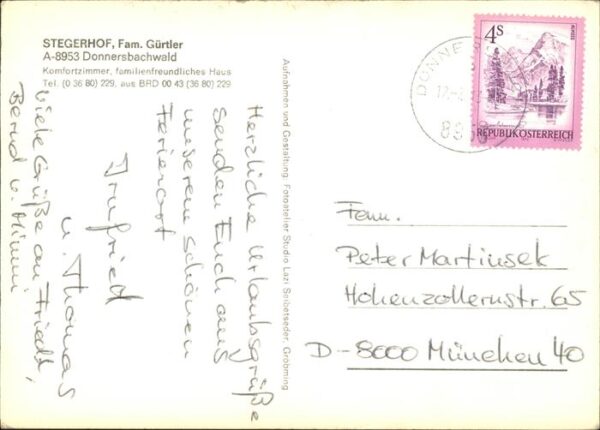 STEGERHOF, Fam. Gürtler
A-8953 Donnersbachwald
Komfortzimmer, familienfreundliches Haus
Tel. (0 36 80) 229, aus BRD 00 43 (36 80) 229
Herzliche Urlaubsgrüße
senden Euch aus
unserem schönen
Ferienort
Irmfried
u. Thomas
Viele Grüße an Friedl,
Bernd u. Mimmi
Aufnahmen und Gestaltung: Fotoatelier Studio Lazi Seibetseder, Gröbming
4S
REPUBLIK ÖSTERREICH
DONNE
Fam.
Peter Martinsek
Hohenzollernstr. 65
D-8000 München 40